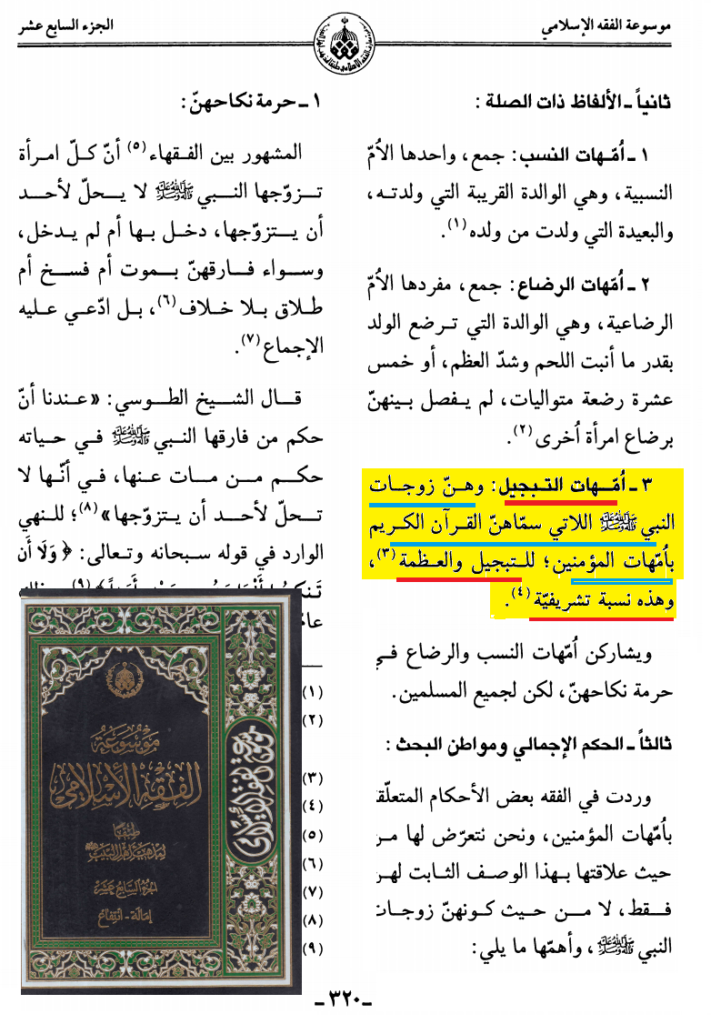 موسوعة الفقه الإسلامي
الجزء السابع عشر
ثانياً ـ الألفاظ ذات الصلة :
١ ـ أُمّهات النسب : جمع، واحدها الأُمّ
النسبية، وهي الوالدة القريبة التي ولدته،
والبعيدة التي ولدت من ولده(١).
٢ ـ أُمّهات الرضاع : جمع، مفردها الأُمّ
الرضاعية، وهي الوالدة التي ترضع الولد
بقدر ما أنبت اللحم وشدّ العظم، أو خمس
عشرة رضعة متواليات، لم يفصل بينهنّ
برضاع امرأة أُخرى(٢).
٣ ـ أُمّهات التبجيل : وهنّ زوجات
النبي ﷺ اللاتي سمّاهنّ القرآن الكريم
بأُمّهات المؤمنين؛ للتبجيل والعظمة(٣)،
وهذه نسبة تشريفيّة(٤).
ويشاركن أُمّهات النسب والرضاع في
حرمة نكاحهنّ، لكن لجميع المسلمين.
ثالثاً ـ الحكم الإجمالي ومواطن البحث :
وردت في الفقه بعض الأحكام المتعلّقة
بأُمّهات المؤمنين، ونحن نتعرّض لها من
حيث علاقتها بهذا الوصف الثابت لهن
فقط، لا من حيث كونهنّ زوجات
النبي ﷺ، وأهمّها ما يلي:
١ ـ حرمة نكاحهنّ :
المشهور بين الفقهاء(٥) أنّ كلّ امرأة
تزوّجها النبي ﷺ لا يحلّ لأحد
أن يتزوّجها، دخل بها أم لم يدخل،
وسواء فارقهنّ بموت أم فسخ أم
طلاق بلا خلاف(٦)، بل ادّعي عليه
الإجماع(٧).
قال الشيخ الطوسي: «عندنا أنّ
حكم من فارقها النبي ﷺ في حياته
حكم من مات عنها، في أنّها لا
تحلّ لأحد أن يتزوّجها»(٨)؛ للنهي
الوارد في قوله سبحانه وتعالى: ﴿وَلَا أَن
(١)
(٢)
(٣)
(٤)
(٥)
(٦)
(٧)
(٨)
(٩)
موسوعة
الفقه الإسلامي
طبقاً
لمذهب أهل البيت
الجزء السابع عشر
إمالة - انتفاع
ـ ٣٢٠ ـ